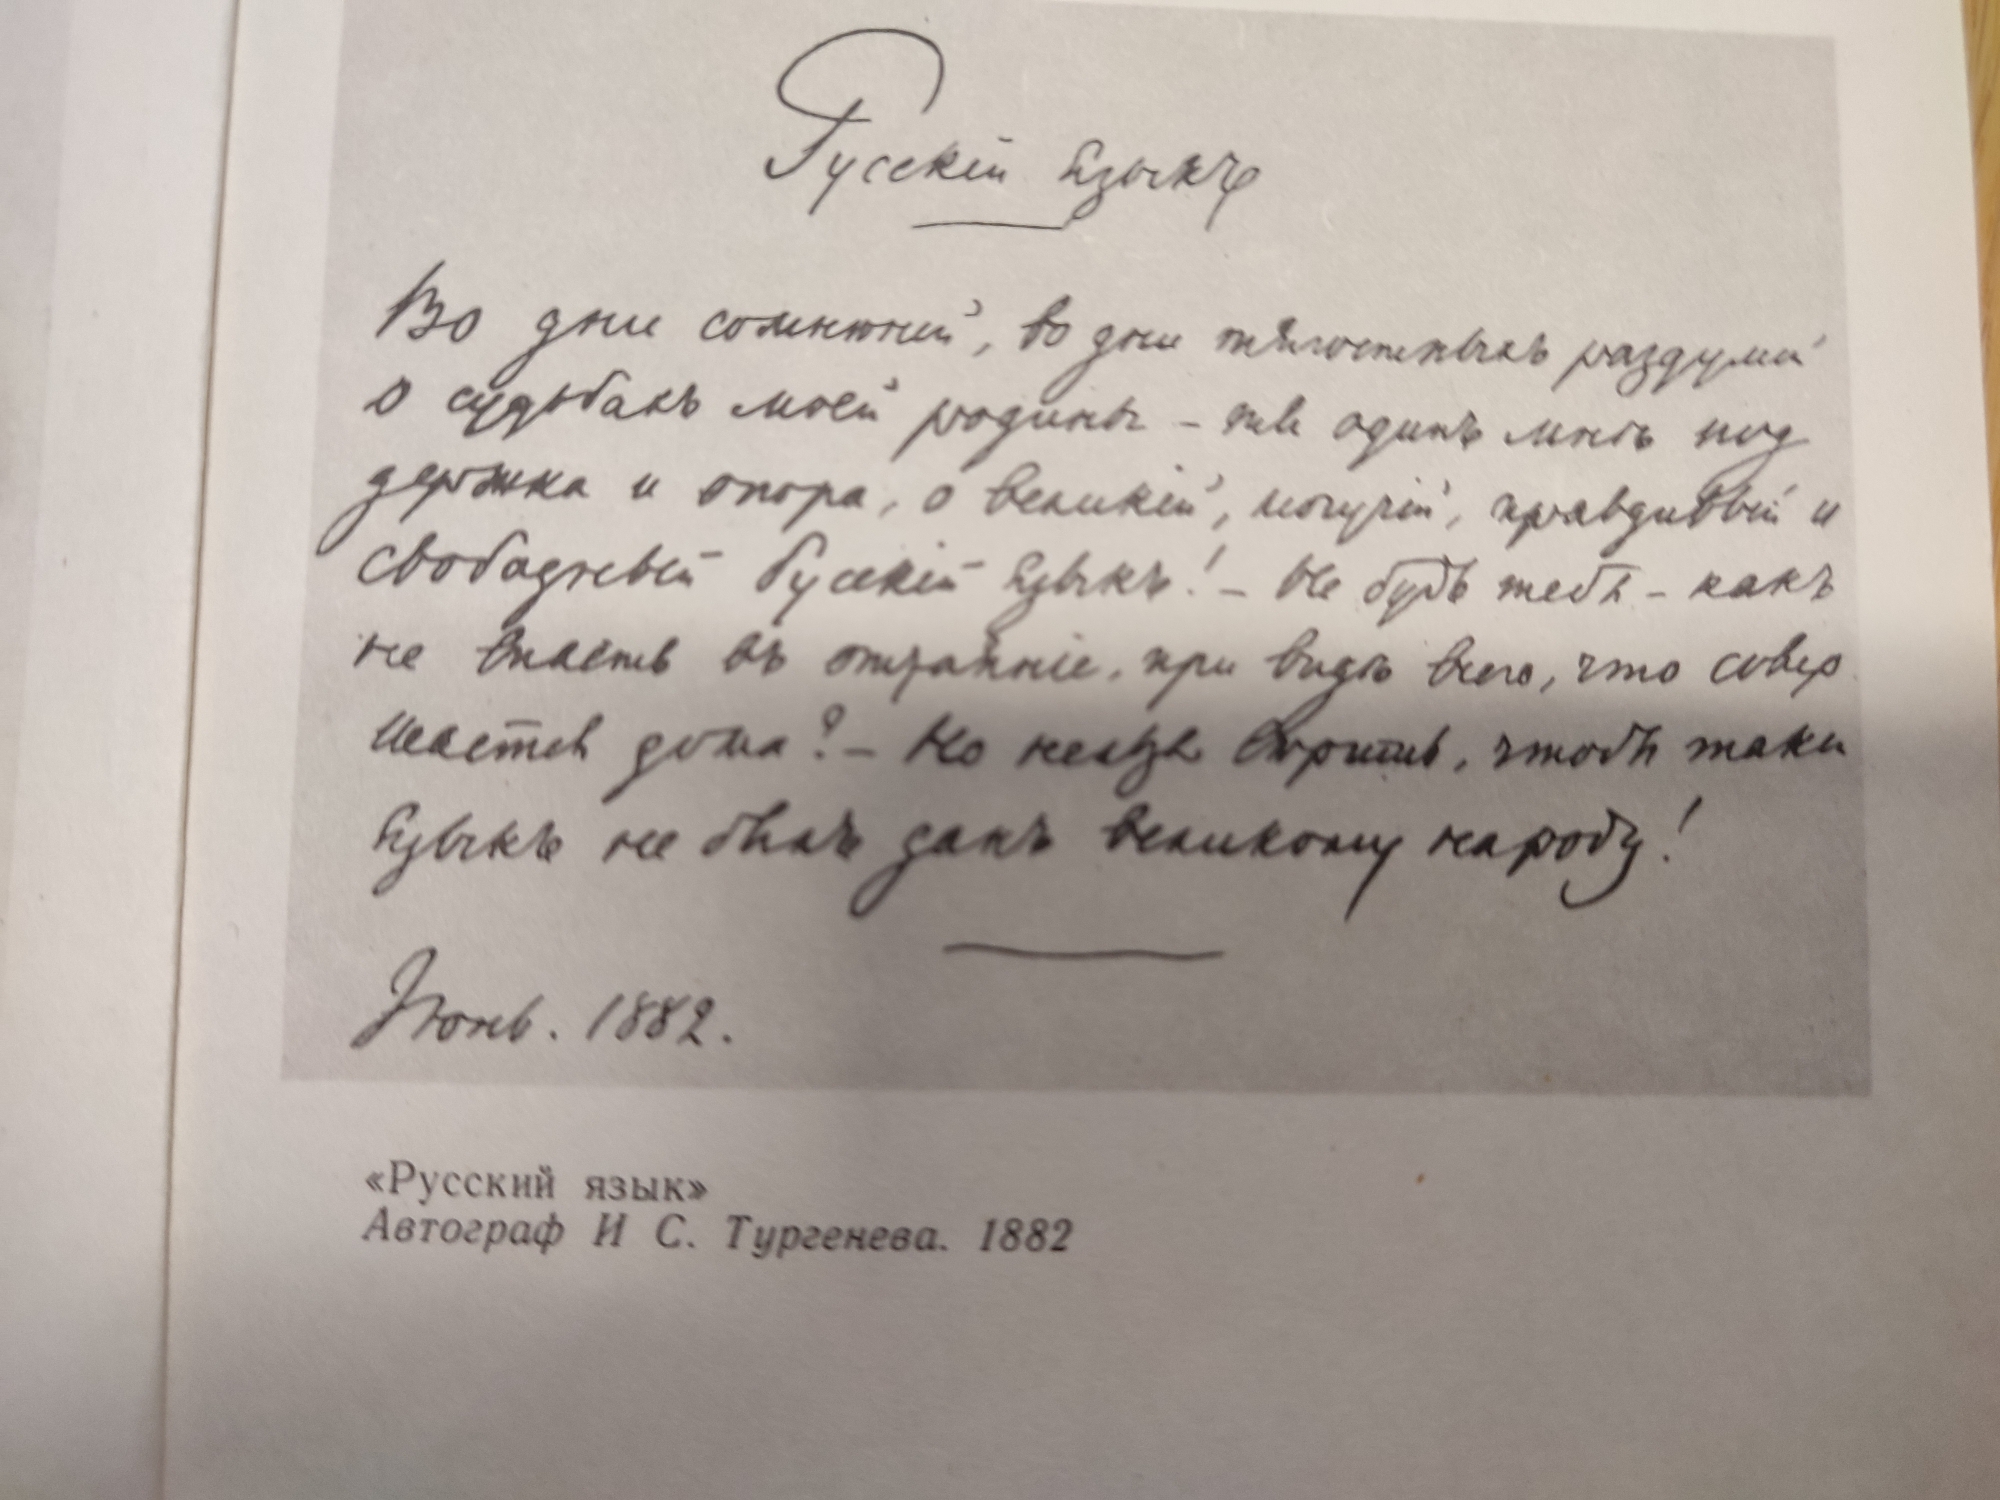 Русскій языкъ
Во дни сомнѣній, во дни тягостныхъ раздумій
о судьбахъ моей родины – ты одинъ мнѣ под
держка и опора, о великій, могучій, правдивый и
свободный Русскій языкъ! – Не будь тебя – какъ
не впасть въ отчаяніе, при видѣ всего, что совер
шается дома? – Но нельзя вѣрить, чтобы такой
языкъ не былъ данъ великому народу!
Іюнь. 1882.
«Русский язык»
Автограф И С. Тургенева. 1882